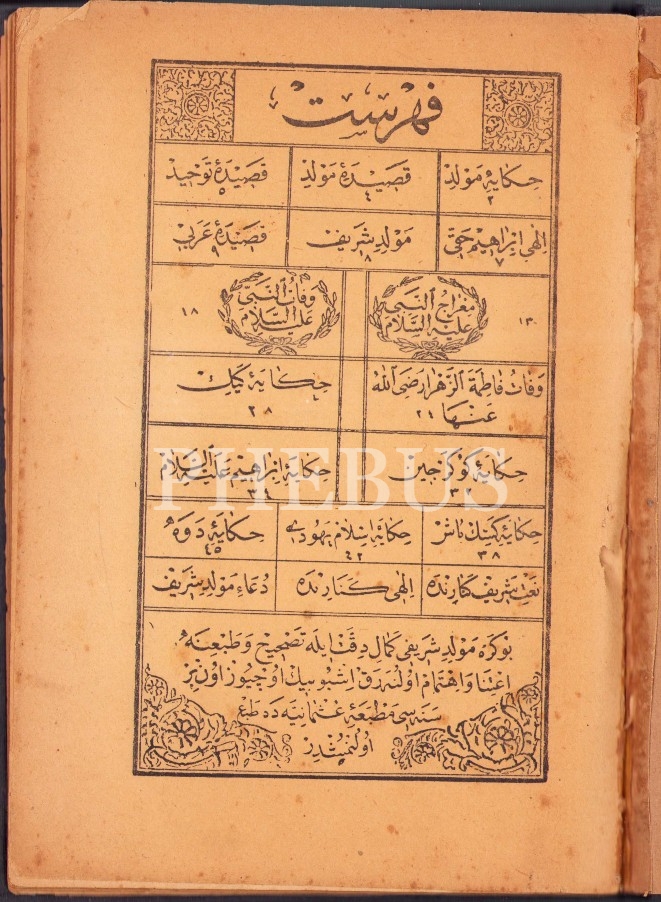 فهرست
حكايۀ مولد ٢
قصيدۀ مولد ٤
قصيدۀ توحيد ٥
الهى ابراهيم حقى ٧
مولد شريف ٨
قصيدۀ عربى ٩
معراج النبى عليه السلام ١٣
وفات النبى عليه السلام ١٨
وفات فاطمة الزهرا رضى الله
عنها ٢١
حكايۀ كيك
٢٨
حكايۀ كوكرجين
٣٢
حكايۀ ابراهيم عليه السلام
٣٤
PHEBUS
حكايۀ كسك باش ٣٨
حكايۀ اسلام يهودى ٤٢
حكايۀ دوه ٤٥
نعت شريف كنارنده
الهى كنارنده
دعاء مولد شريف
بو كره مولد شريفى كمال دقت ايله تصحيح وطبعنه
اعتنا واهتمام اولنه رق اشبو بيك اوچيوز اون بر
سنه سى مطبعۀ عثمانيه ده طبع
اولنمشدر